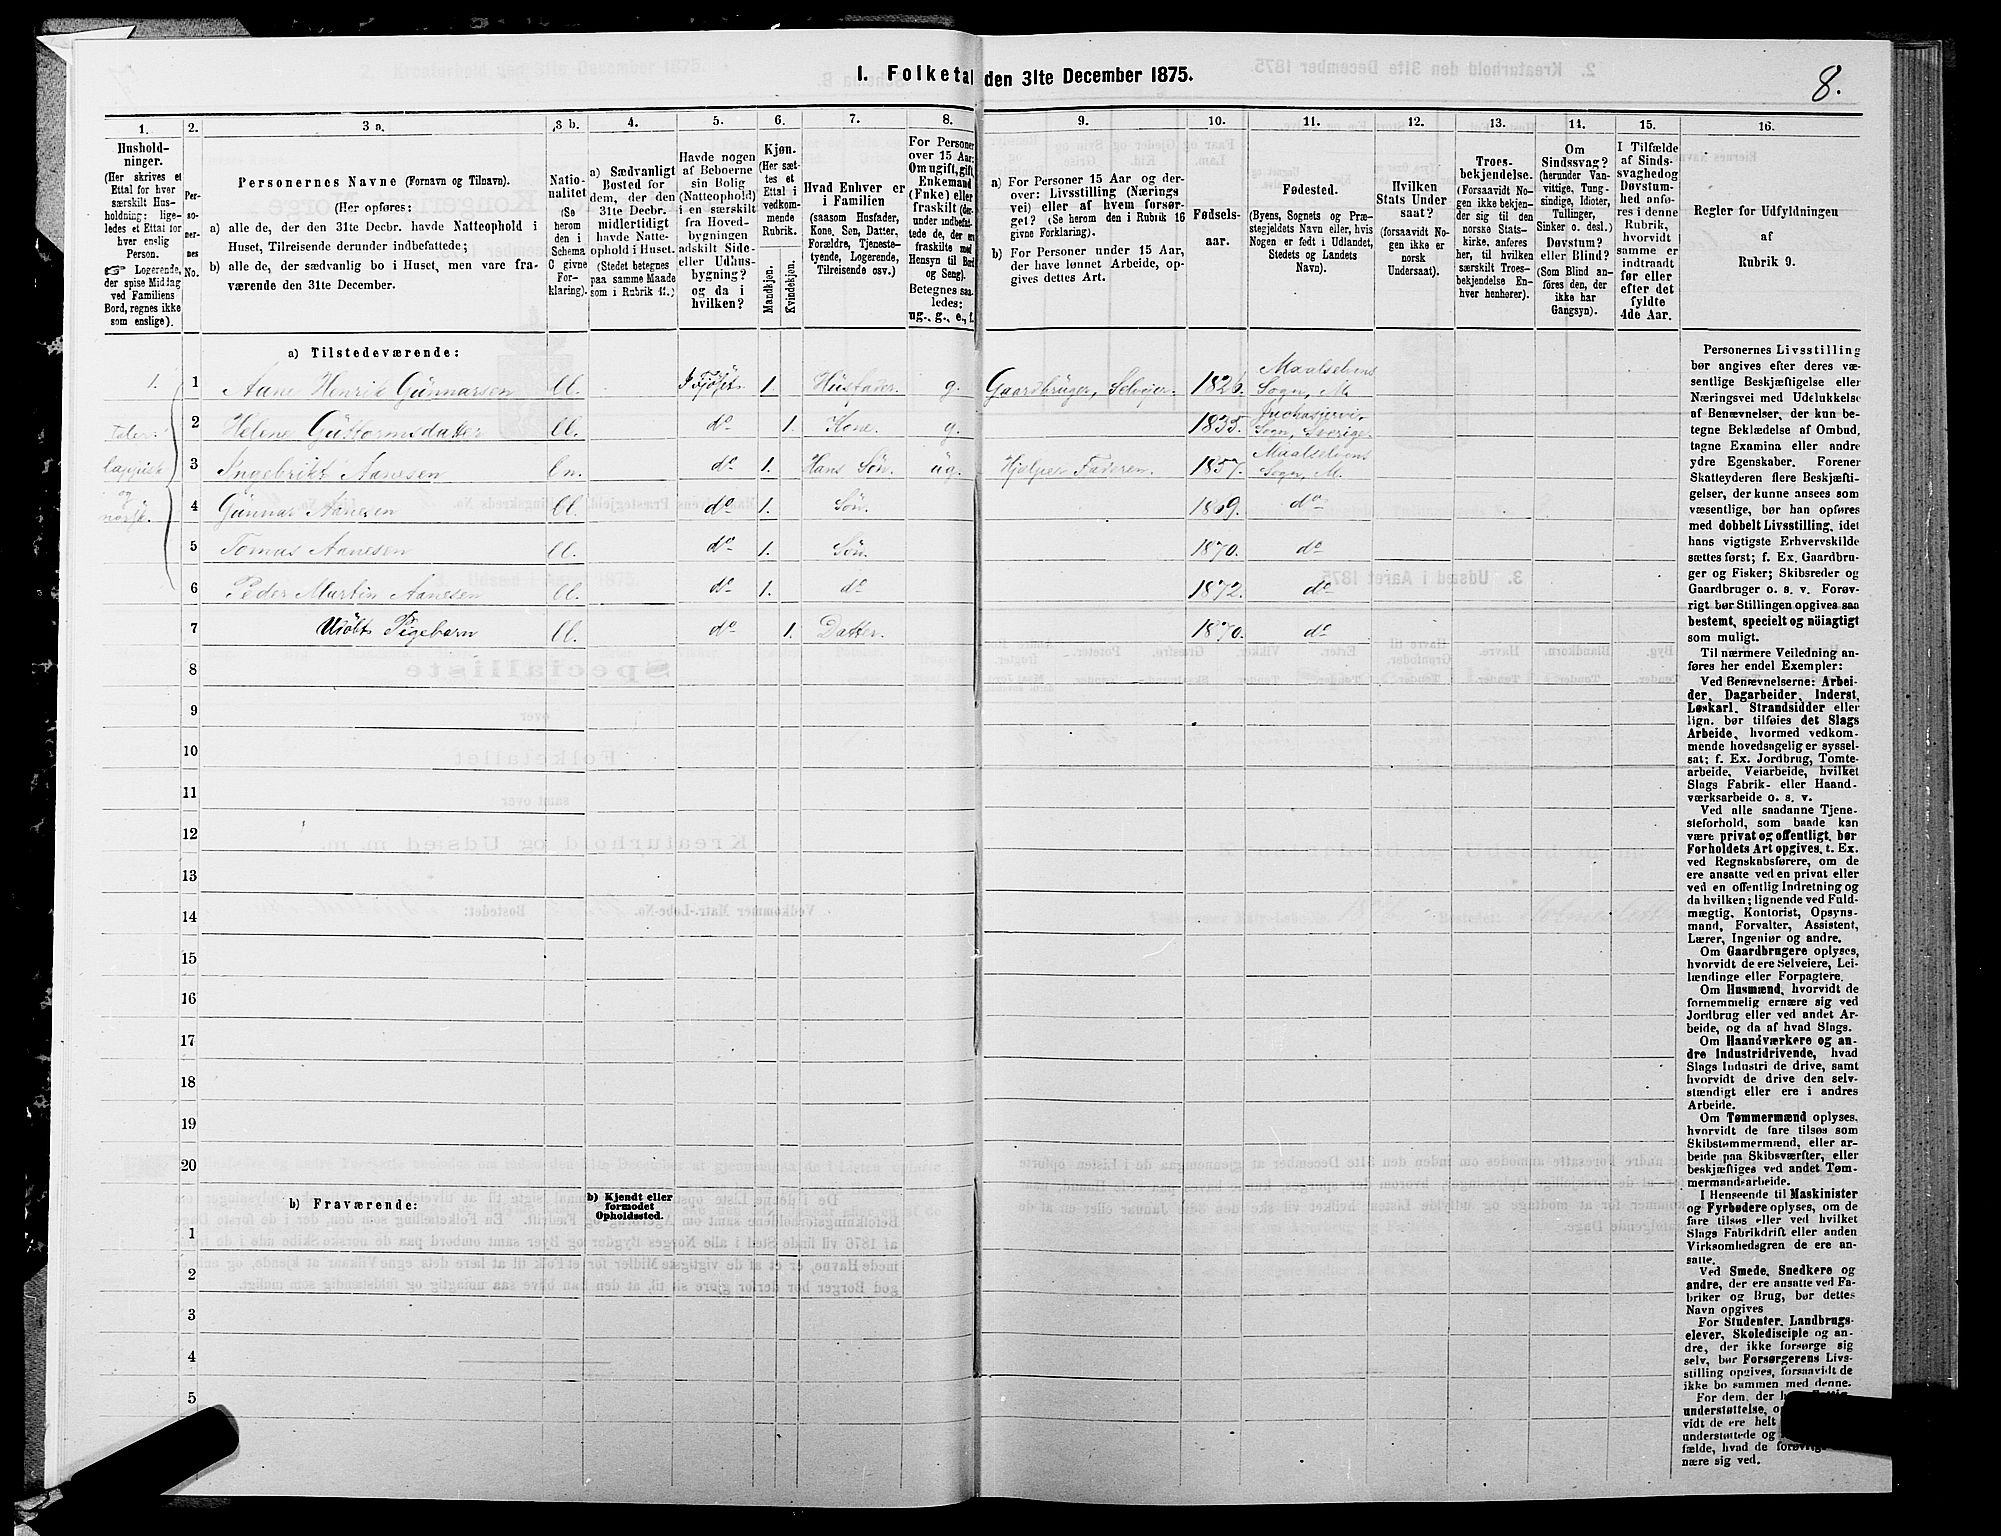 I. Folketal den 31te December 1875.
8.
1.
Hushold-
ninger.
(Her skrives et
Ettal for hver
særskilt Hus-
holdning: lige-
ledes et Ettal for
hver enslig
Person.
☞ Logerende,
der spise Middag
ved Familiens
Bord, regnes ikke
som enslige).
2.
Per-
so-
ner-
nes
No.
3 a.
Personernes Navne (Fornavn og Tilnavn).
(Her opføres:
a) alle de, der den 31te Decbr. havde Natteophold i
Huset, Tilreisende derunder indbefattede;
b) alle de, der sædvanlig bo i Huset, men vare fra-
værende den 31te December.
3 b.
Natio-
nalitet
(Se
herom
den i
Schema
C givne
For-
klaring).
4.
a) Sædvanligt
Bosted for
dem, der den
31te Decbr.
midlertidigt
havde Natte-
ophold i Huset.
(Stedet betegnes
paa samme Maade
som i Rubrik 11.)
5.
Havde nogen
af Beboerne
sin Bolig
(Natteophold)
i en særskilt
fra Hoved-
bygningen
adskilt Side-
eller Udhus-
bygning?
og da i
hvilken?
6.
Kjøn.
(Her sæt-
tes et
Ettal i
vedkom-
mende
Rubrik.
Mandkjøn.
Kvindekjøn.
7.
Hvad Enhver er
i Familien
(saasom Husfader,
Kone, Søn, Datter,
Forældre, Tjeneste-
tyende, Logerende,
Tilreisende osv.)
8.
For Personer
over 15 Aar:
Om ugift, gift,
Enkemand
(Enke) eller
fraskilt (der-
under indbefat-
tede de, der ere
fraskilte med
Hensyn til Bord
og Seng).
Betegnes saa-
ledes:
ug., g., e., f.
9.
a) For Personer 15 Aar og der-
over: Livsstilling (Nærings
vei) eller af hvem forsør-
get? (Se herom den i Rubrik 16
givne Forklaring).
b) For Personer under 15 Aar,
der have lønnet Arbeide, op-
gives dettes Art.
10.
Fødsels-
aar.
11.
Fødested.
(Byens, Sognets og Præ-
stegjeldets Navn eller, hvis
Nogen er født i Udlandet,
Stedets og Landets
Navn).
12.
Hvilken
Stats Under
saat?
(forsaavidt No-
gen ikke er
norsk
Undersaat).
13.
Troes-
bekjendelse.
(Forsaavidt No-
gen ikke bekjen-
der sig til den
norske Stats-
kirke, anføres
her, til hvilken
særskilt Troes-
bekjendelse En-
hver henhører).
14.
Om
Sindssvag?
(herunder Van-
vittige, Tung-
sindige, Idioter,
Tullinger,
Sinker o. desl.)
Døvstum?
eller Blind?
(Som Blind an-
føres den, der
ikke har
Gangsyn).
15.
I Tilfælde
af Sinds-
svaghed og
Døvstum-
hed anfø-
res i denne
Rubrik,
hvorvidt
samme er
indtraadt
før eller
efter det
fyldte
4de Aar.
16.
Regler for Udfyldningen
af
Rubrik 9.
a) Tilstedeværende:
1. 1 Aane Henrik Gunnarsen bl. Fjøset 1. Husfader g. Gaardbruger, Selveier 1826. Maalselvens Sogn, M.
2 Helene Guttormsdatter bl. do 1. Kone. g. 1835. Sogn, Sverige.
3 Ingebrikt Aanesen bn. do 1. Hans Søn. ug. Hjelper Faderen. 1857. Maalselvens Sogn, M.
4 Gunnar Aanesen bl. do 1. Søn. 1869. do
5 Tomas Aanesen bl. do 1. Søn. 1870. do
6 Peder Martin Aanesen bl. do 1. do 1872. do
7 Udøbt Pigebarn bl. do 1. Datter. do
Taler
lappisk
og
norsk.
8
9
10
11
12
13
14
15
16
17
18
19
20
b) Fraværende:
b) Kjendt eller
formodet
Opholdssted.
1
2
3
4
5
Personernes Livsstilling
bør angives efter deres væ-
sentlige Beskjæftigelse eller
Næringsvei med Udelukkelse
af Benævnelser, der kun be-
tegne Beklædelse af Ombud,
tagne Examina eller andre
ydre Egenskaber. Forener
Skatteyderen flere Beskjæfti-
gelser, der kunne ansees som
væsentlige, bør han opføres
med dobbelt Livsstilling, idet
hans vigtigste Erhvervskilde
sættes først; f. Ex. Gaardbru-
ger og Fisker; Skibsreder og
Gaardbruger o. s. v. Forøv-
rigt bør Stillingen opgives saa
bestemt, specielt og nöiagtigt
som muligt.
Til nærmere Veiledning an-
føres her endel Exempler:
Ved Benævnelserne: Arbei-
der, Dagarbeider, Inderst,
Løskarl, Strandsidder eller
lign. bør tilføies det Slags
Arbeide, hvormed vedkom-
mende hovedsagelig er syssel-
sat; f. Ex. Jordbrug, Tomte-
arbeide, Veiarbeide, hvilket
Slags Fabrik- eller Haand-
værksarbeide o. s. v.
Ved alle saadanne Tjene-
steforhold, som baade kan
være privat og offentligt, bør
Forholdets Art opgives, t. Ex.
ved Regnskabsførere, om de
ere ansatte ved en privat eller
ved en offentlig Indretning og
da hvilken; lignende ved Fuld-
mægtig, Kontorist, Opsyns-
mand, Forvalter, Assistent,
Lærer, Ingeniør og andre.
Om Gaardbrugere oplyses,
hvorvidt de ere Selveiere, Lei-
lændinge eller Forpagtere.
Om Husmænd, hvorvidt de
fornemmelig ernære sig ved
Jordbrug eller ved andet Ar-
beide, og da af hvad Slags.
Om Haandværkere og an-
dre Industridrivende, hvad
Slags Industri de drive, samt
hvorvidt de drive den selv-
stændigt eller ere i andres
Arbeide.
Om Tømmermænd oplyses,
hvorvidt de fare tilsøs som
Skibstømmermænd, eller ar-
beide paa Skibsværfter, eller
beskjæftiges ved andet Tøm-
mermandsarbeide.
I Henseende til Maskinister
og Fyrbødere oplyses, om de
fare tilsøs eller ved hvilket
Slags Fabrikdrift eller anden
Virksomhedsgren de ere an-
satte.
Ved Smede, Snedkere og
andre, der ere ansatte ved Fa-
briker og Brug, bør dettes
Navn opgives
For Studenter, Landbrugs-
elever, Skoledisciple og an-
dre, der ikke forsørge sig
selv, bør Forsørgerens Livs-
stilling opgives, forsaavidt de
ikke bo sammen med denne.
For dem, der
understøttelse,
vidt de ere helt
understøttede og
fælde, hvad de
nære sig ved.